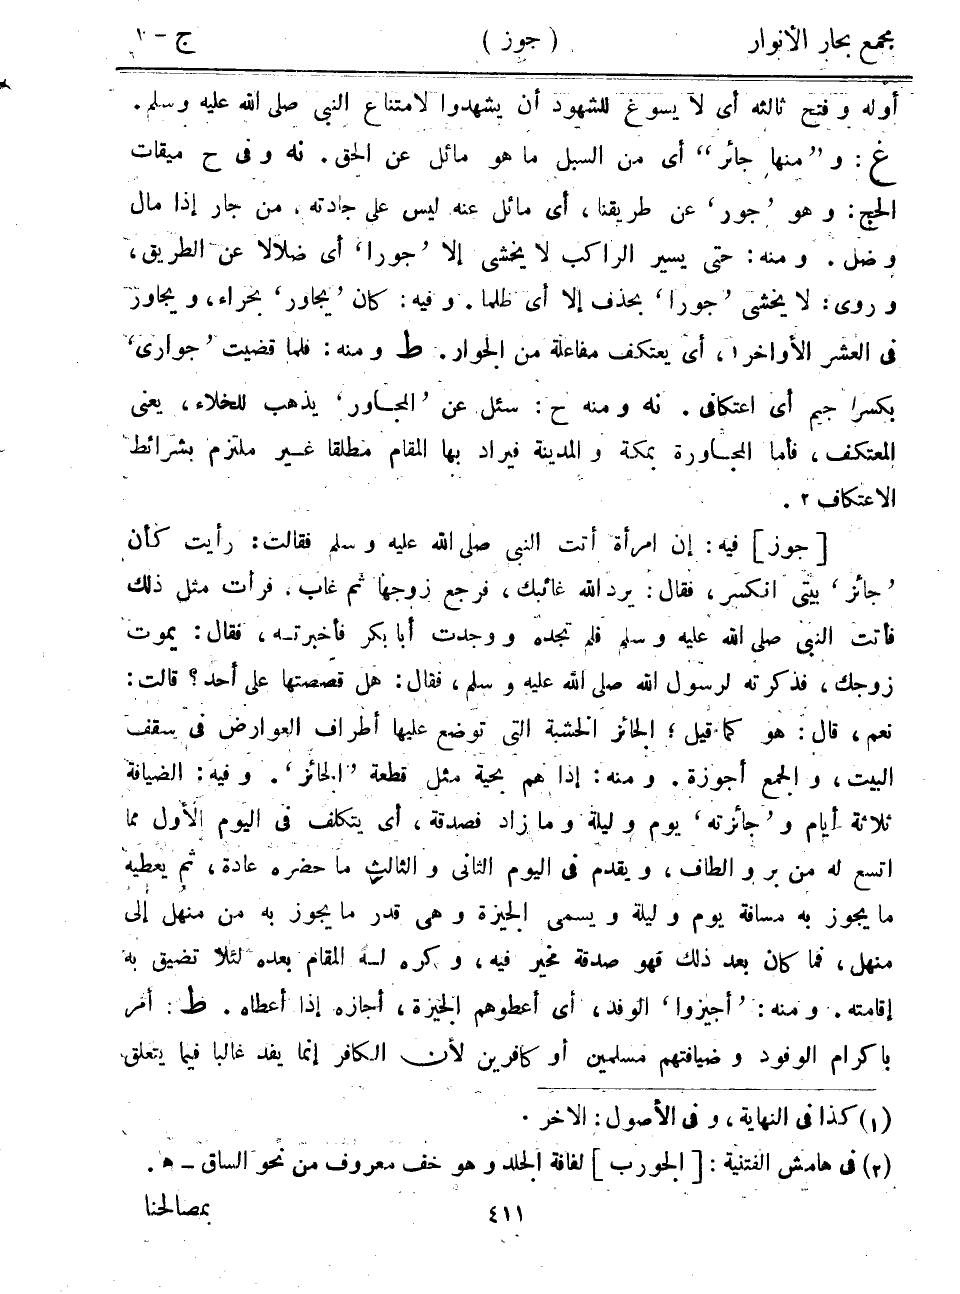 مجمع بحار الأنوار ( جوز ) ج - ١
أوله و فتح ثالثه أى لا يسوغ للشهود أن يشهدوا لامتناع النبى صلى الله عليه وسلم.
غ: و ”منها جائر“ أى من السبل ما هو مائل عن الحق. نه و فى ح ميقات
الحج: و هو ’جور‘ عن طريقنا، أى مائل عنه ليس على جادته، من جار إذا مال
و ضل. و منه: حتى يسير الراكب لا يخشى إلا ’جورا‘ أى ضلالا عن الطريق،
و روى: لا يخشى ’جورا‘ بحذف إلا أى ظلما. و فيه: كان ’يجاور‘ بحراء، و يجاور
فى العشر الأواخر١، أى يعتكف مفاعلة من الجوار. ط و منه: فلما قضيت ’جوارى‘
بكسر جيم أى اعتكافى. نه و منه ح: سئل عن ’المجاور‘ يذهب للخلاء، يعنى
المعتكف، فأما المجاورة بمكة و المدينة فيراد بها المقام مطلقا غير ملتزم بشرائط
الاعتكاف٢.
[جوز] فيه: إن امرأة أتت النبى صلى الله عليه و سلم فقالت: رأيت كأن
’جائز‘ بيتى انكسر، فقال: يرد الله غائبك، فرجع زوجها ثم غاب. فرأت مثل ذلك
فأتت النبى صلى الله عليه و سلم فلم تجده و وجدت أبا بكر فأخبرته، فقال: يموت
زوجك، فذكرته لرسول الله صلى الله عليه و سلم، فقال: هل قصصتها على أحد؟ قالت:
نعم، قال: هو كما قيل؛ الجائز الخشبة التى توضع عليها أطراف العوارض فى سقف
البيت، و الجمع أجوزة. و منه: إذا هم بحية مثل قطعة ’الجائز‘. و فيه: الضيافة
ثلاثة أيام و ’جائزته‘ يوم و ليلة و ما زاد فصدقة، أى يتكلف فى اليوم الأول مما
اتسع له من بر و الطاف، و يقدم فى اليوم الثانى و الثالث ما حضره عادة، ثم يعطيه
ما يجوز به مسافة يوم و ليلة و يسمى الجيزة و هى قدر ما يجوز به من منهل إلى
منهل، فما كان بعد ذلك فهو صدقة مخير فيه، و كره له المقام بعده لئلا تضيق به
إقامته. و منه: ’أجيزوا‘ الوفد، أى أعطوهم الجيزة، أجازه إذا أعطاه. ط: أمر
باكرام الوفود و ضيافتهم مسلمين أو كافرين لأن الكافر إنما يفد غالبا فيما يتعلق
(١) كذا فى النهاية، و فى الأصول: الاخر.
(٢) فى هامش الفتنية: [الجورب] لفافة الجلد و هو خف معروف من نحو الساق - ه.
بمصالحنا
٤١١